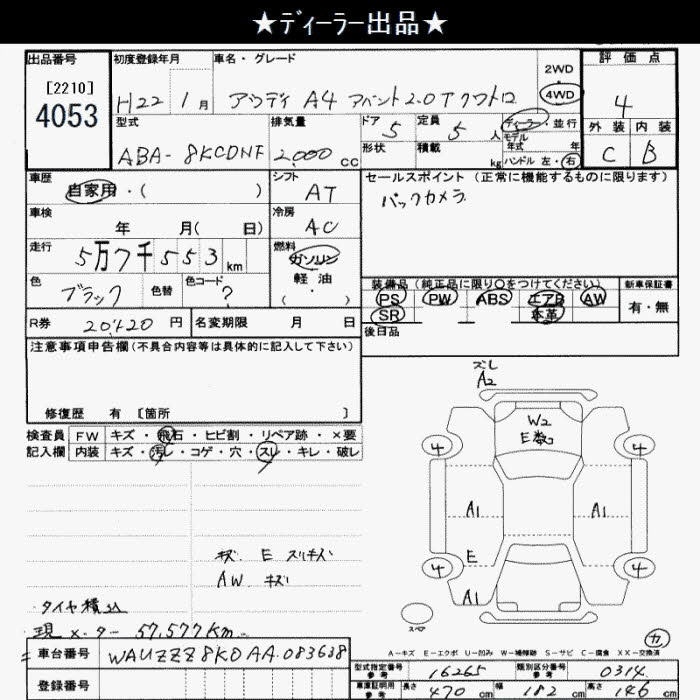 ★ディーラー出品★
出品番号 初度登録年月 車名・グレード 2WD 評価点
[2210]
4053
H22 1月 アウディ A4 アバント2.0Tクワトロ 4WD 4
型式 排気量 ドア 5 定員 5人 ディーラー・並行 外装 内装
モデル年式 年
ABA-8KCDNF 2,000cc 形状 積載 kg ハンドル 左・右 C B
車歴 シフト セールスポイント (正常に機能するものに限ります)
自家用・( ) AT バックカメラ
車検 冷房
年 月( 日) AC
走行 燃料
5万7千553km ガソリン
色 色替 色コード 軽油
ブラック ? (・)
装備品 (純正品に限り○をつけてください) 新車保証書
PS PW ABS エアB AW 有・無
SR 本革
R券 20,420円 名変期限 月 日 後日品
注意事項申告欄(不具合内容等は具体的に記入して下さい)
修復歴 有 [箇所 ]
検査員 FW キズ・飛石・ヒビ割・リペア跡・×要
記入欄 内装 キズ・汚レ・コゲ・穴・スレ・キレ・破レ
ズレ
A2
W2
E数コ
4 4
A1 A1
E
4 4
A1
キズ E スリキズ
AW キズ
タイヤ積込
現メーター 57,577Km
スペア
A-キズ E-エクボ U-凹み W-補修跡 S-サビ C-腐食 XX-交換済
カ
車台番号 WAUZZZ8K0AA083638
登録番号
型式指定番号 参考 16265 類別区分番号 参考 0314
車庫証明用 参考 長さ 470cm 幅 182cm 高さ 146cm